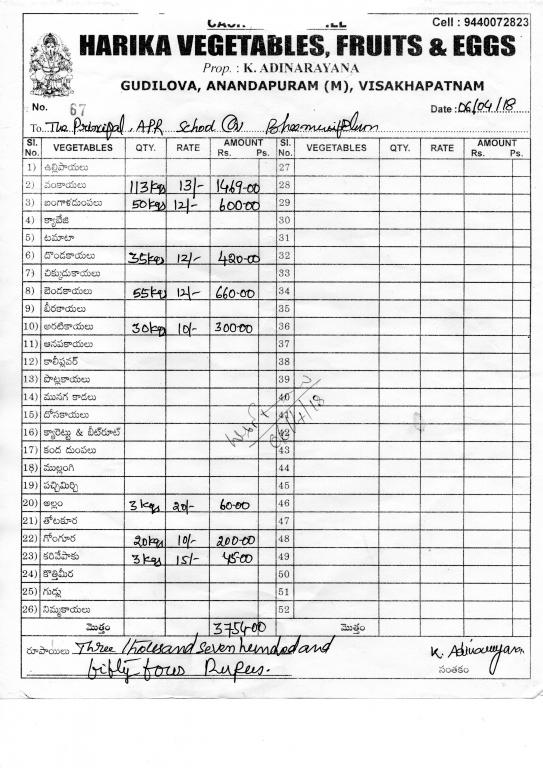 CASH BILL
Cell : 9440072823
HARIKA VEGETABLES, FRUITS & EGGS
Prop. : K. ADINARAYANA
GUDILOVA, ANANDAPURAM (M), VISAKHAPATNAM
No. 67 Date : 06/04/18
To The Principal, APR School (B)
Sl. No. VEGETABLES QTY. RATE AMOUNT Rs. Ps. Sl. No. VEGETABLES QTY. RATE AMOUNT Rs. Ps.
1) ఉల్లిపాయలు 27
2) వంకాయలు 113 kgs 13/- 1469-00 28
3) బంగాళదుంపలు 50 kgs 12/- 600-00 29
4) క్యాబేజి 30
5) టమాటా 31
6) దొండకాయలు 35 kgs 12/- 420-00 32
7) చిక్కుడుకాయలు 33
8) బెండకాయలు 55 kgs 12/- 660-00 34
9) బీరకాయలు 35
10) అరటికాయలు 30 kgs 10/- 300-00 36
11) ఆనపకాయలు 37
12) కాలీఫ్లవర్ 38
13) పొట్లకాయలు 39
14) మునగ కాడలు 40
15) దోసకాయలు 41
16) క్యారెట్టు & బీట్‌రూట్ 42
17) కంద దుంపలు 43
18) ముల్లంగి 44
19) పచ్చిమిర్చి 45
20) అల్లం 3 kgs 20/- 60-00 46
21) తోటకూర 47
22) గోంగూర 20 kgs 10/- 200-00 48
23) కరివేపాకు 3 kgs 15/- 45-00 49
24) కొత్తిమీర 50
25) గుడ్లు 51
26) నిమ్మకాయలు 52
మొత్తం 3754-00 మొత్తం
రూపాయిలు Three thousand seven hundred and
fifty four Rupees.
K. Adinarayana
సంతకం